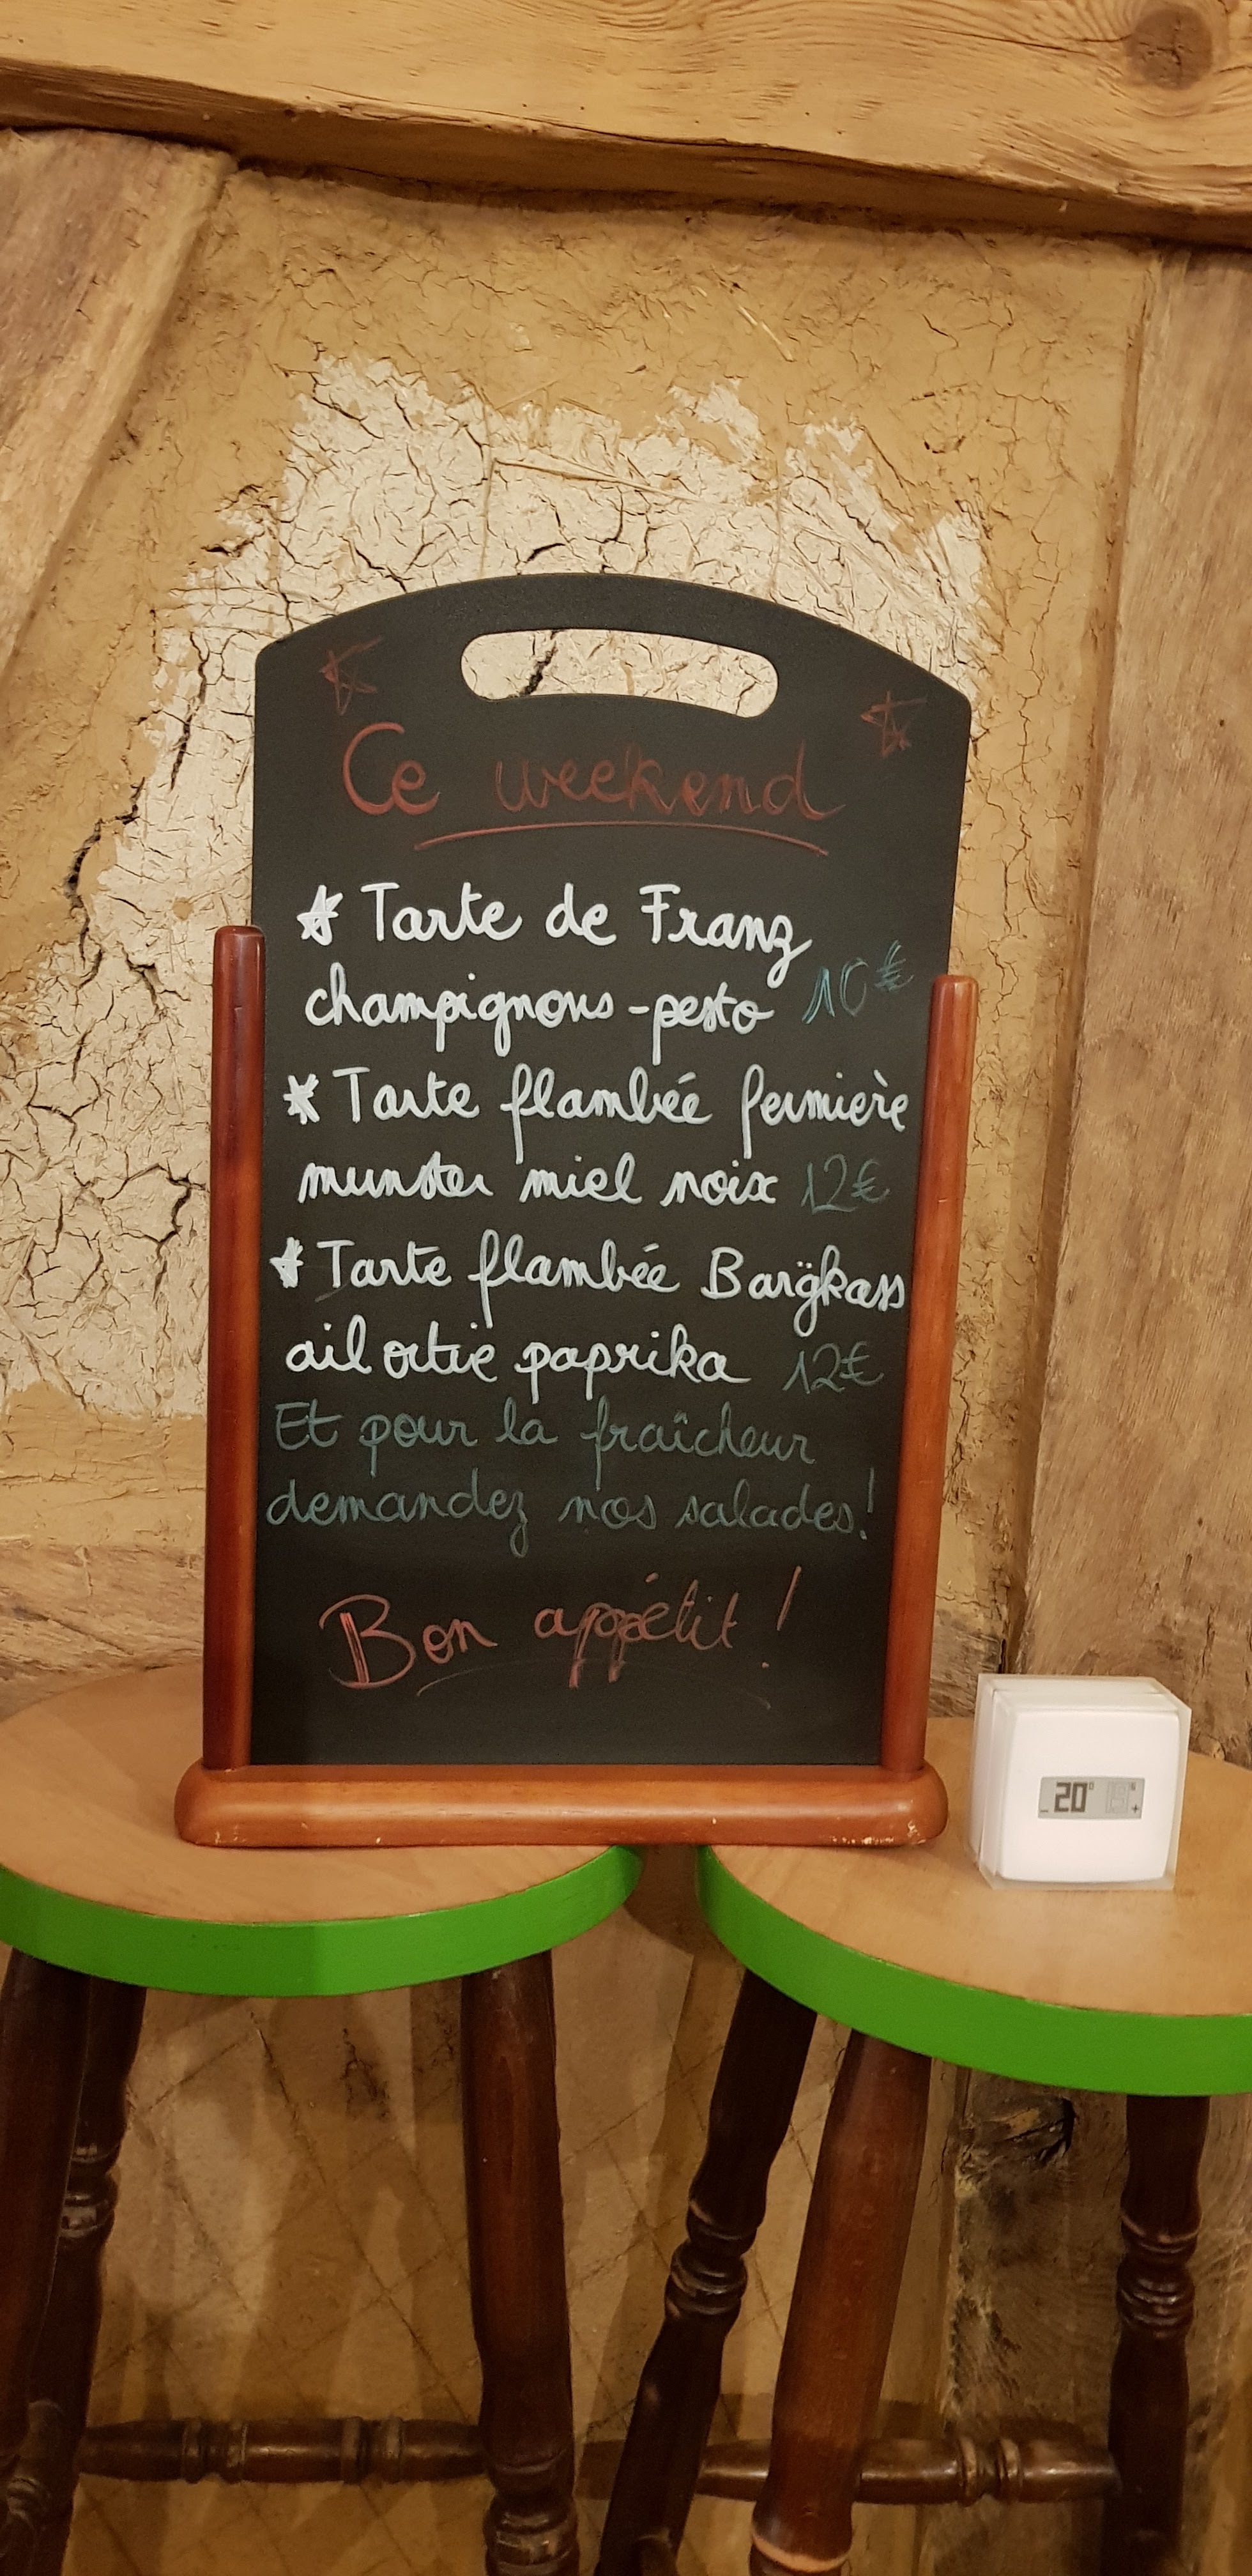 Ce weekend
Tarte de Franz
champignons-pesto 10€
Tarte flambée fermière
munster miel noix 12€
Tarte flambée Barǵkass
ail ortie paprika 12€
Et pour la fraîcheur
demandez nos salades!
Bon appétit !
20°